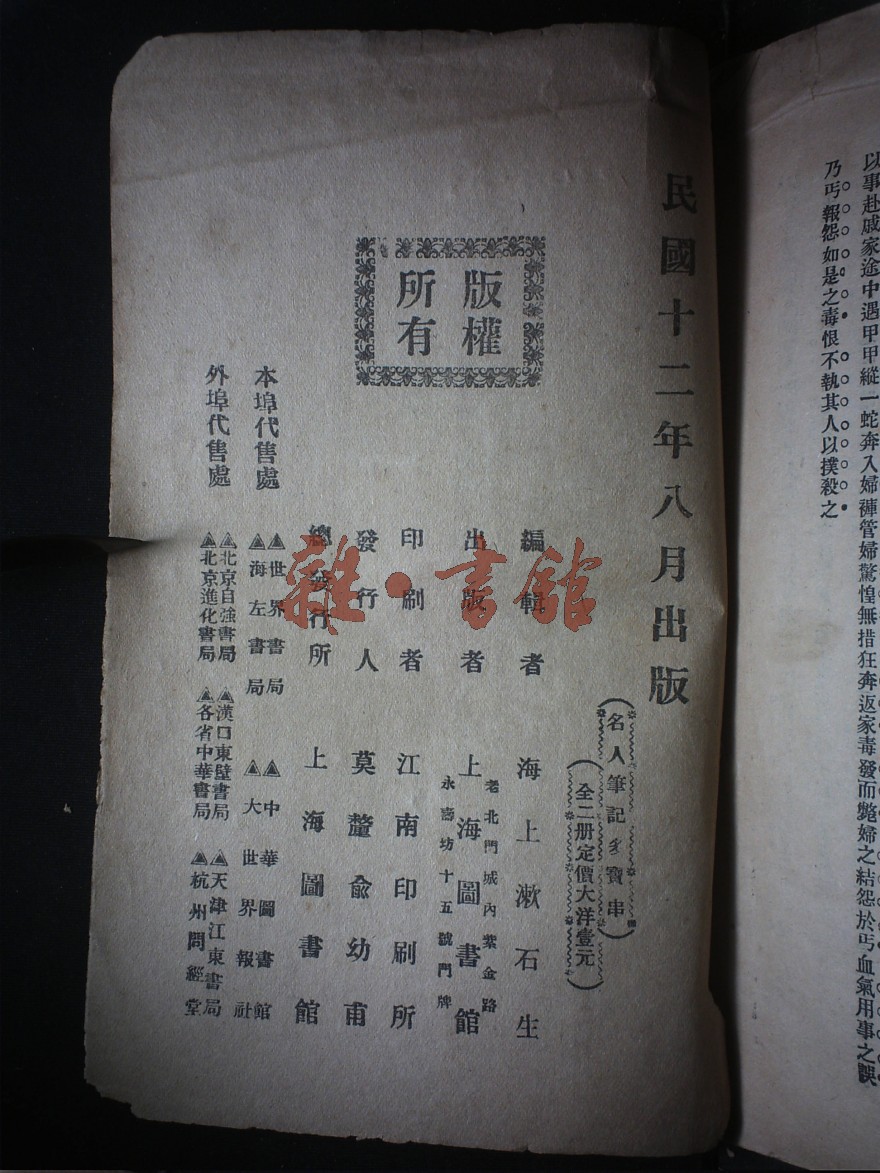 以事赴戚家途中遇甲甲縱一蛇奔入婦褲管婦驚惶無措狂奔返家毒發而斃婦之結怨於丐血氣用事之誤
乃丐報怨如是之毒恨不執其人以撲殺之
民國十二年八月出版
(名人筆記多寶串)
(全二册定價大洋壹元)
版權
所有
編輯者 海上漱石生
出版者 上海圖書館
老北門城內紫金路
永壽坊十五號門牌
印刷者 江南印刷所
發行人 莫釐俞幼甫
總發行所 上海圖書館
本埠代售處
▲世界書局 ▲中華圖書館
▲海左書局 ▲大世界報社
外埠代售處
▲北京自強書局 ▲漢口東壁書局 ▲天津江東書局
▲北京進化書局 ▲各省中華書局 ▲杭州問經堂
雜·書館